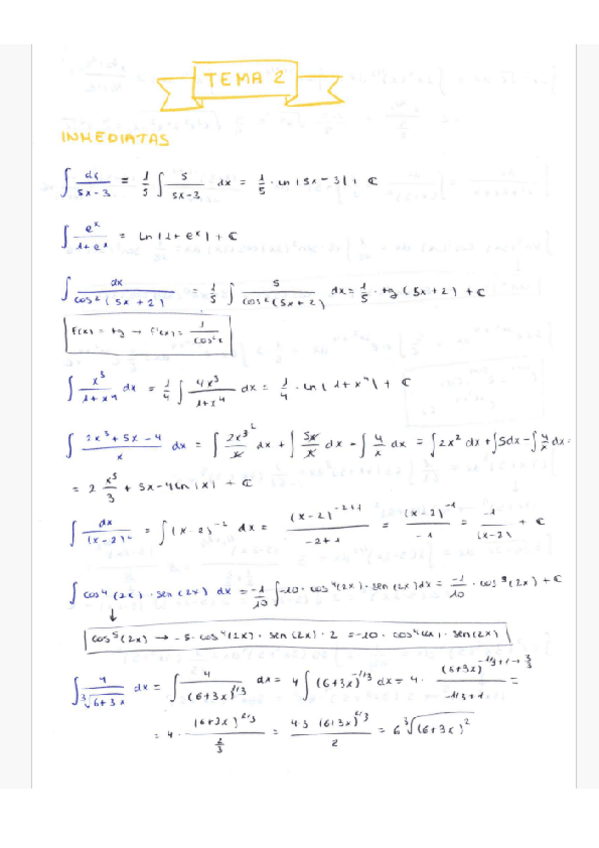 TEMA 2
INMEDIATAS
∫ dx/(5x-3) = 1/5 ∫ 5/(5x-3) dx = 1/5 · ln|5x-3| + C
∫ e^x/(1+e^x) = ln|1+e^x| + C
∫ dx/cos²(5x+2) = 1/5 ∫ 5/cos²(5x+2) dx = 1/5 · tg(5x+2) + C
F(x) = tg → F'(x) = 1/cos²x
∫ x³/(1+x⁴) dx = 1/4 ∫ 4x³/(1+x⁴) dx = 1/4 · ln|1+x⁴| + C
∫ (2x³+5x-4)/x dx = ∫ 2x³/x dx + ∫ 5x/x dx - ∫ 4/x dx = ∫ 2x² dx + ∫ 5dx - ∫ 4/x dx =
= 2 x³/3 + 5x - 4 ln|x| + C
∫ dx/(x-2)² = ∫ (x-2)^-2 dx = (x-2)^(-2+1)/(-2+1) = (x-2)^-1/-1 = -1/(x-2) + C
∫ cos⁴(2x) · sen(2x) dx = -1/10 ∫ -10 · cos⁴(2x) · sen(2x) dx = -1/10 · cos⁵(2x) + C
↓
cos⁵(2x) → -5 · cos⁴(2x) · sen(2x) · 2 = -10 · cos⁴(2x) · sen(2x)
∫ 4/∛(6+3x) dx = ∫ 4/(6+3x)^(1/3) dx = 4 ∫ (6+3x)^(-1/3) dx = 4 · (6+3x)^(-1/3+1 → 3/3)/(-1/3+1) =
= 4 · (6+3x)^(2/3)/(2/3) = 4·3 (6+3x)^(2/3)/2 = 6 ∛(6+3x)²